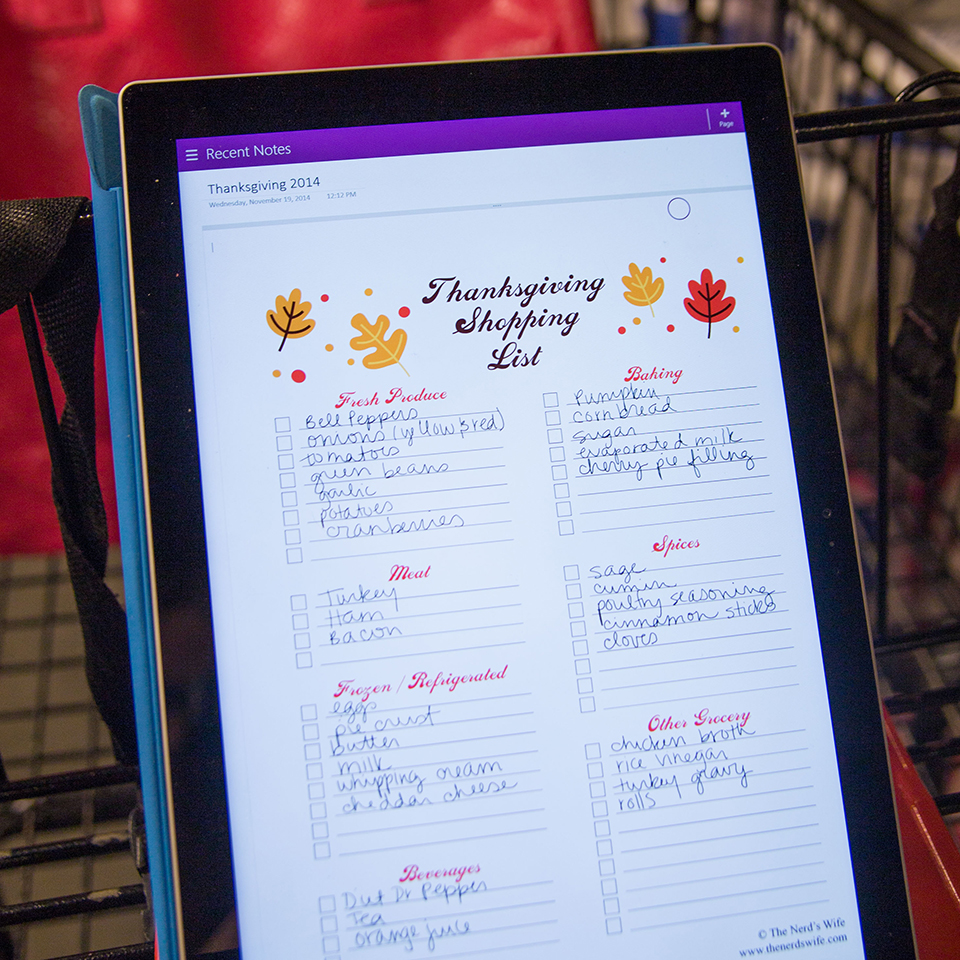 Recent Notes
+
Page
Thanksgiving 2014
Wednesday, November 19, 2014 12:12 PM
Thanksgiving
Shopping
List
Fresh Produce
Bell Peppers
onions (yellow & red)
tomatoes
green beans
garlic
potatoes
cranberries
Meat
Turkey
Ham
Bacon
Frozen / Refrigerated
eggs
pie crust
Butter
milk
whipping cream
cheddar cheese
Beverages
Diet Dr Pepper
Tea
orange juice
Baking
Pumpkin
cornbread
sugar
evaporated milk
cherry pie filling
Spices
sage
cumin
poultry seasoning
cinnamon sticks
cloves
Other Grocery
chicken broth
rice vinegar
turkey gravy
rolls
© The Nerd's Wife
www.thenerdswife.com